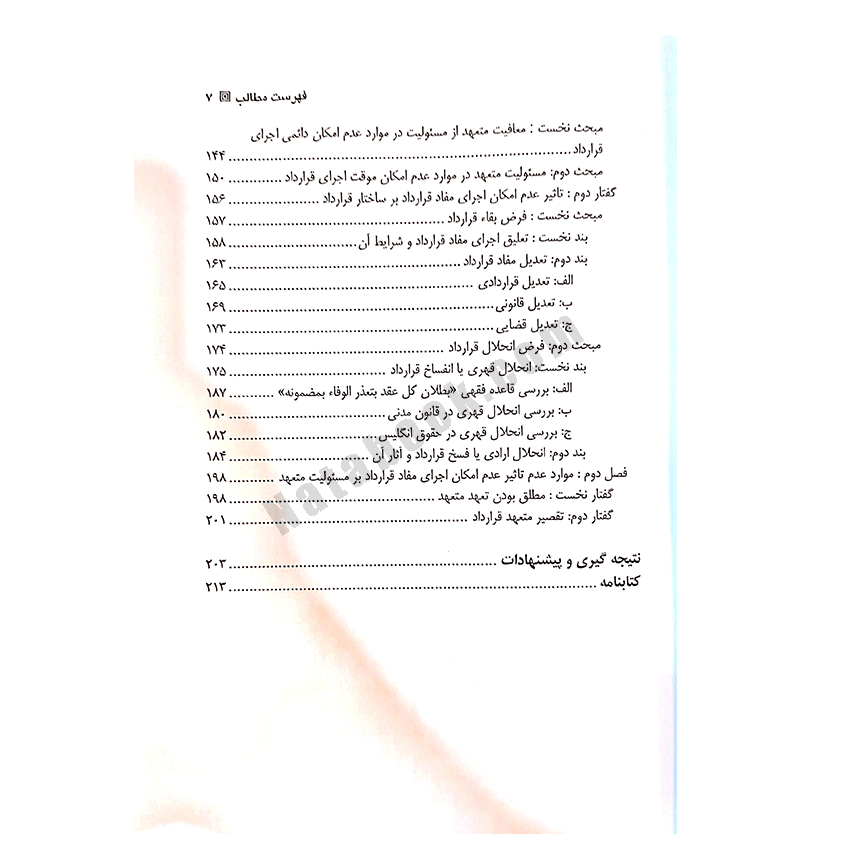 فهرست مطالب ۷
مبحث نخست : معافیت متعهد از مسئولیت در موارد عدم امکان دائمی اجرای
قرارداد ........ ۱۴۴
مبحث دوم: مسئولیت متعهد در موارد عدم امکان موقت اجرای قرارداد ........ ۱۵۰
گفتار دوم : تاثیر عدم امکان اجرای مفاد قرارداد بر ساختار قرارداد ........ ۱۵۶
مبحث نخست : فرض بقاء قرارداد ........ ۱۵۷
بند نخست : تعلیق اجرای مفاد قرارداد و شرایط آن ........ ۱۵۸
بند دوم: تعدیل مفاد قرارداد ........ ۱۶۳
الف: تعدیل قراردادی ........ ۱۶۵
ب: تعدیل قانونی ........ ۱۶۹
ج: تعدیل قضایی ........ ۱۷۳
مبحث دوم: فرض انحلال قرارداد ........ ۱۷۴
بند نخست: انحلال قهری یا انفساخ قرارداد ........ ۱۷۵
الف: بررسی قاعده فقهی «بطلان کل عقد بتعذر الوفاء بمضمونه» ........ ۱۸۷
ب: بررسی انحلال قهری در قانون مدنی ........ ۱۸۰
ج: بررسی انحلال قهری در حقوق انگلیس ........ ۱۸۲
بند دوم: انحلال ارادی یا فسخ قرارداد و آثار آن ........ ۱۸۴
فصل دوم : موارد عدم تاثیر عدم امکان اجرای مفاد قرارداد بر مسئولیت متعهد ........ ۱۹۸
گفتار نخست : مطلق بودن تعهد متعهد ........ ۱۹۸
گفتار دوم: تقصیر متعهد قرارداد ........ ۲۰۱
نتیجه گیری و پیشنهادات ........ ۲۰۳
کتابنامه ........ ۲۱۳
Natabook.com